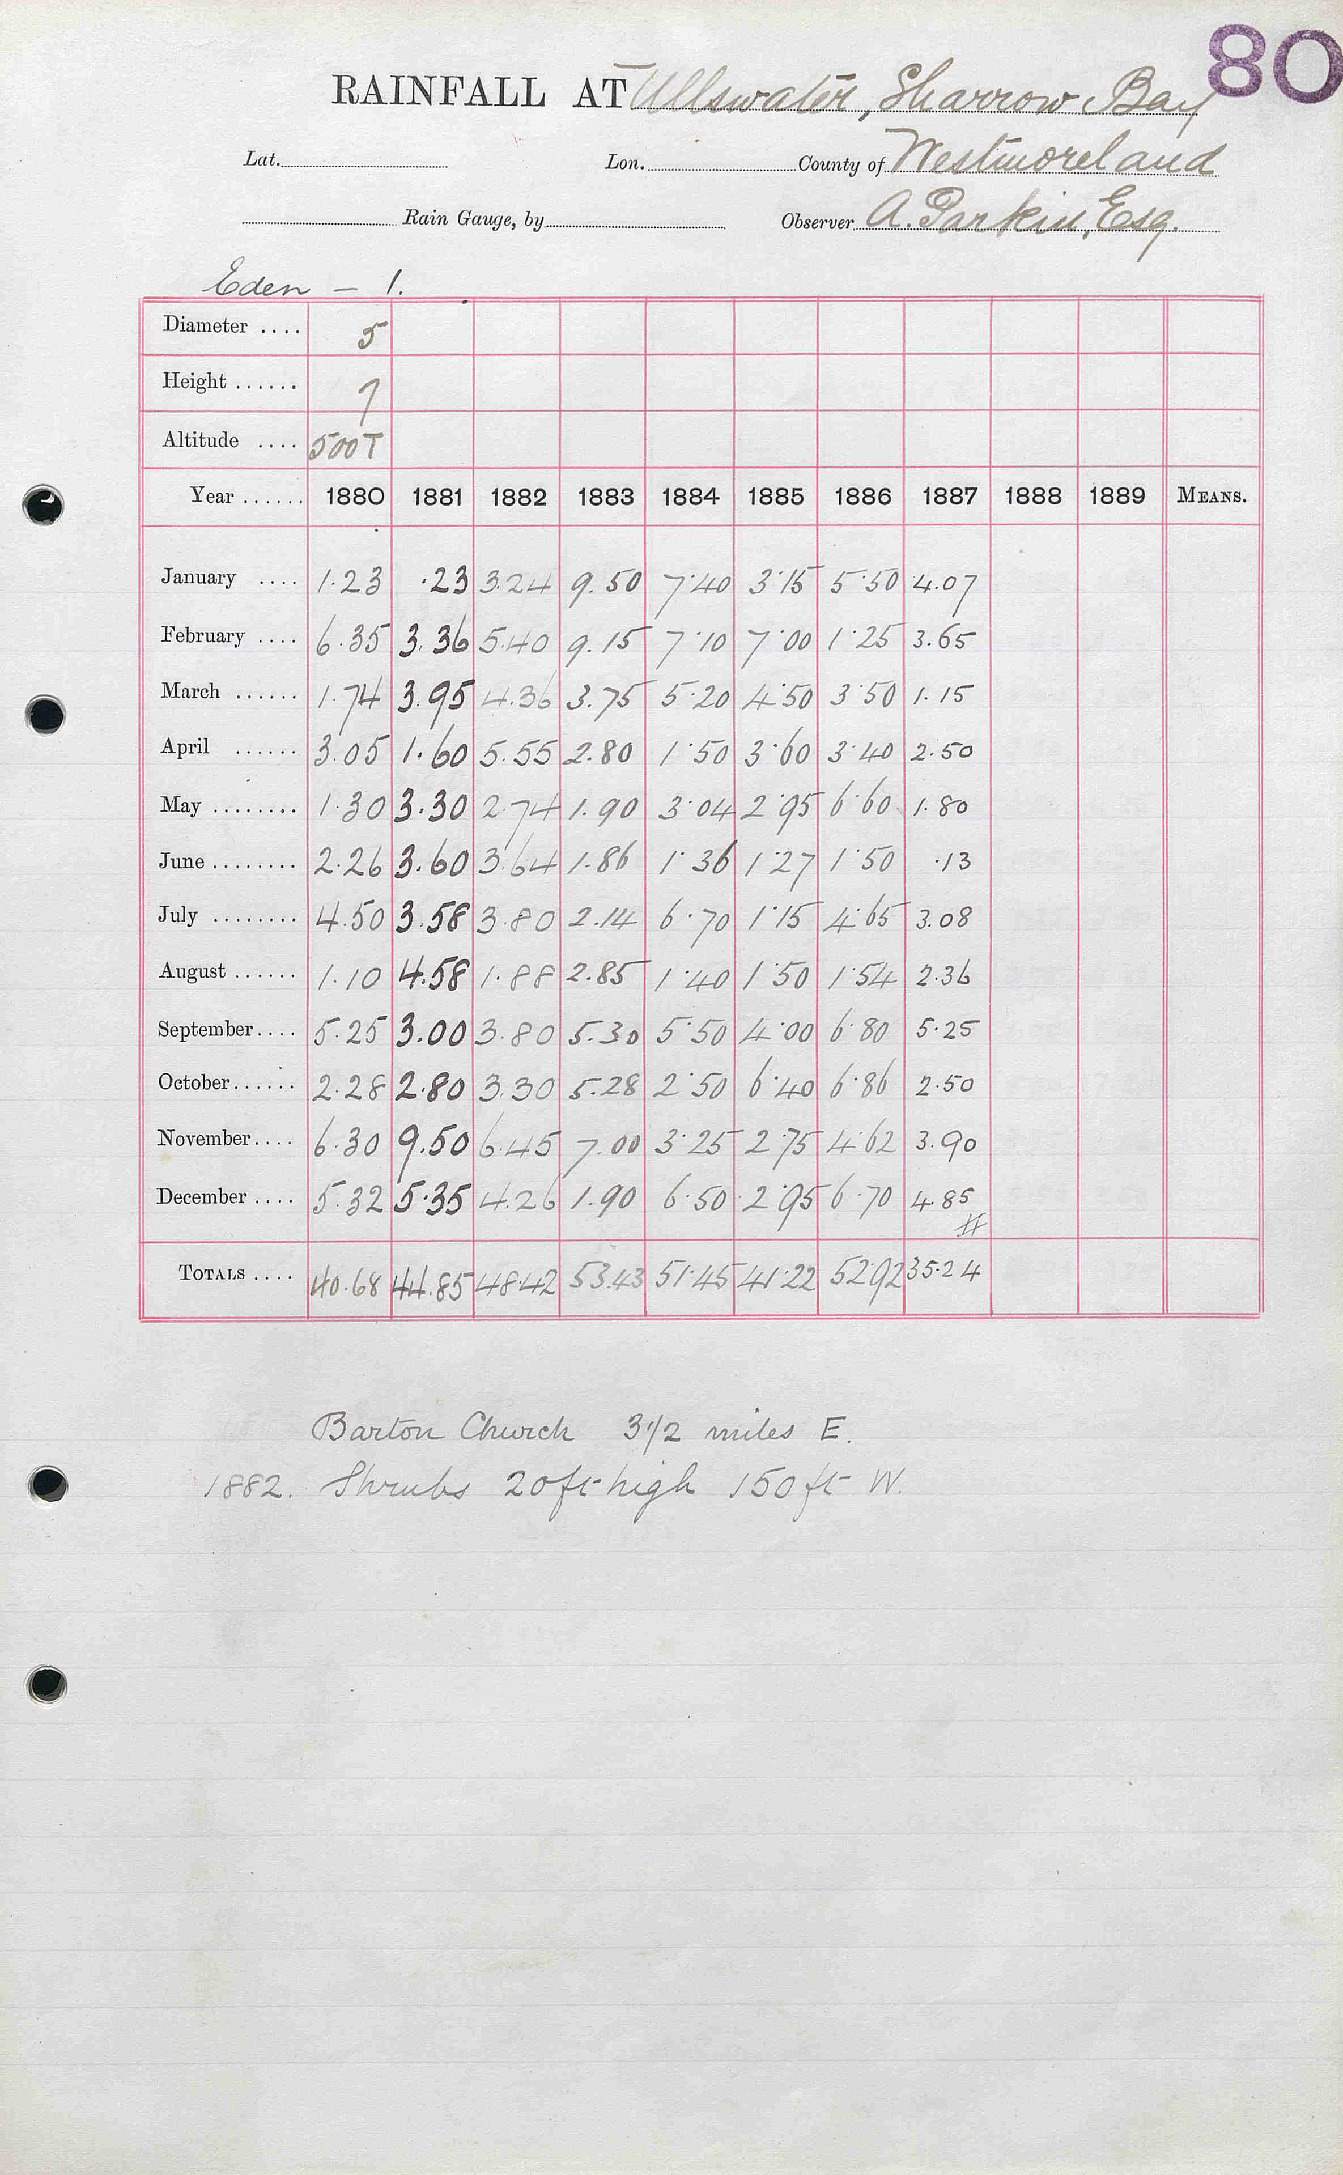 80
RAINFALL AT Ullswater, Sharrow Bay
Lat. Lon. County of Westmoreland
Rain Gauge, by Observer A. Parkin, Esq.
Eden – 1.
Diameter .... 5
Height ...... 7
Altitude .... 500T
Year ...... 1880 1881 1882 1883 1884 1885 1886 1887 1888 1889 MEANS.
January .... 1.23 .23 3.24 9.50 7.40 3.15 5.50 4.07
February .... 6.35 3.36 5.40 9.15 7.10 7.00 1.25 3.65
March ...... 1.74 3.95 4.36 3.75 5.20 4.50 3.50 1.15
April ...... 3.05 1.60 5.55 2.80 1.50 3.60 3.40 2.50
May ........ 1.30 3.30 2.74 1.90 3.04 2.95 6.60 1.80
June ........ 2.26 3.60 3.64 1.86 1.36 1.27 1.50 .13
July ........ 4.50 3.58 3.80 2.14 6.70 1.15 4.65 3.08
August ...... 1.10 4.58 1.88 2.85 1.40 1.50 1.54 2.36
September.... 5.25 3.00 3.80 5.30 5.50 4.00 6.80 5.25
October...... 2.28 2.80 3.30 5.28 2.50 6.40 6.86 2.50
November.... 6.30 9.50 6.45 7.00 3.25 2.75 4.62 3.90
December .... 5.32 5.35 4.26 1.90 6.50 2.95 6.70 4.85
TOTALS .... 40.68 44.85 48.42 53.43 51.45 41.22 52.92 35.24
Barton Church 3 1/2 miles E.
1882. Shrubs 20ft high 150ft W.